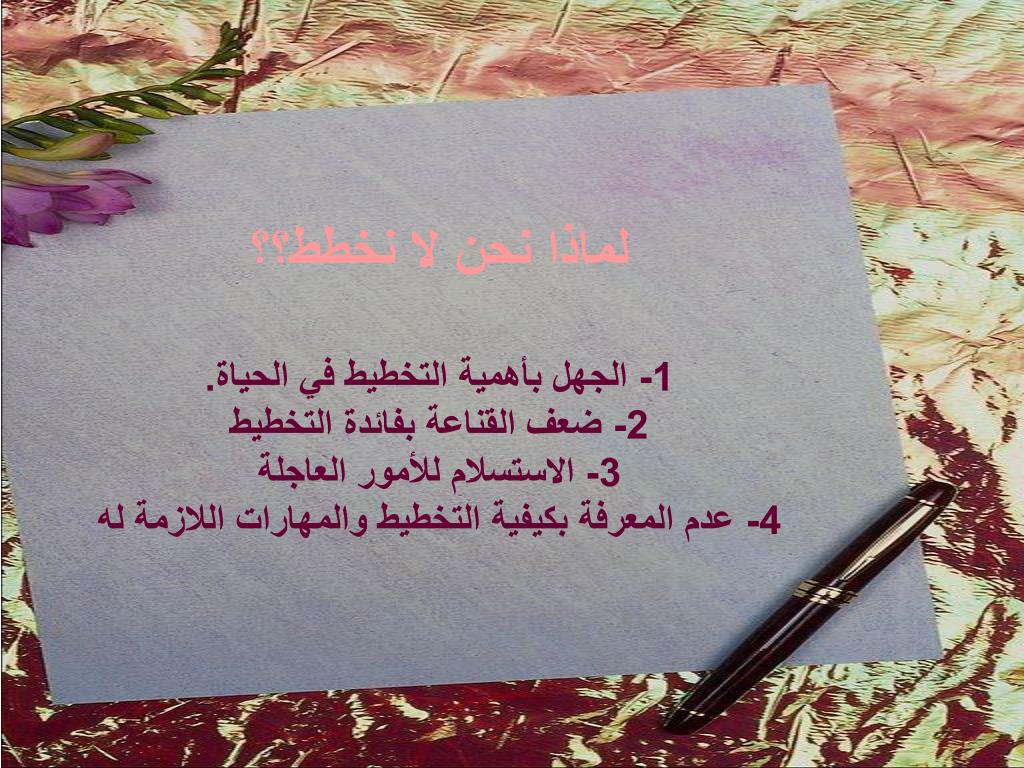 لماذا نحن لا نخطط؟؟
1- الجهل بأهمية التخطيط في الحياة.
2- ضعف القناعة بفائدة التخطيط
3- الاستسلام للأمور العاجلة
4- عدم المعرفة بكيفية التخطيط والمهارات اللازمة له